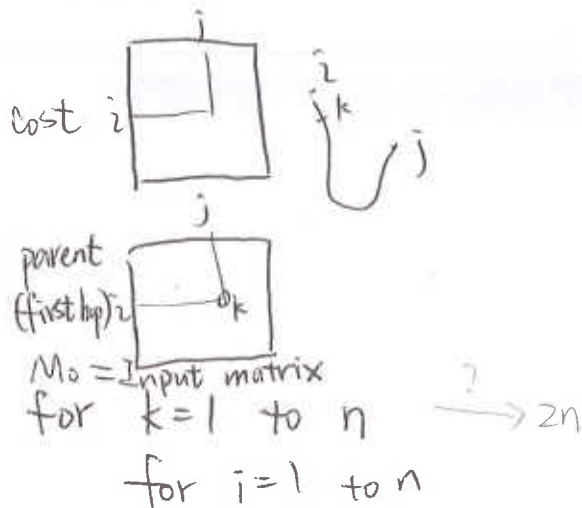 j
cost i
i
k
j
j
parent
(first hop) i
k
M₀ = Input matrix
for k = 1 to n
? → 2n
for i = 1 to n